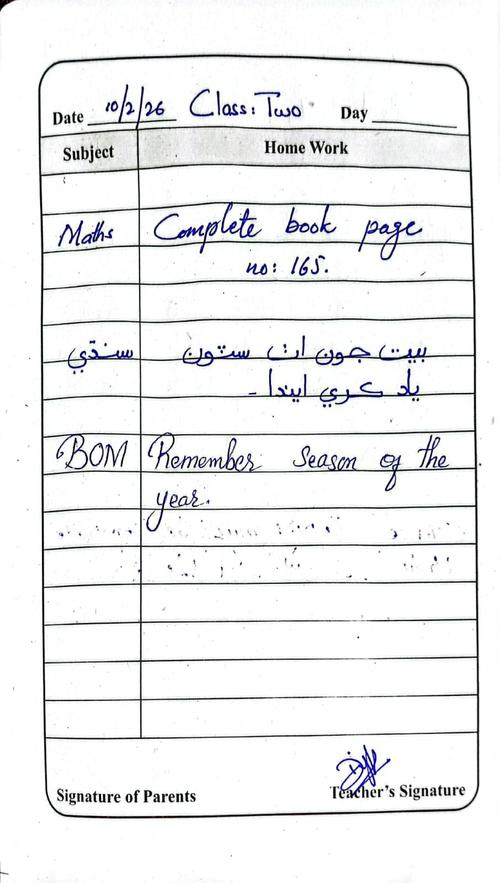 Date 10/2/26 Class: Two Day
Subject Home Work
Maths Complete book page
no: 165.
سنڌي بيت جون اٺ سٽون
ياد ڪري ايندا ۔
BOM Remember season of the
year.
Signature of Parents Teacher's Signature